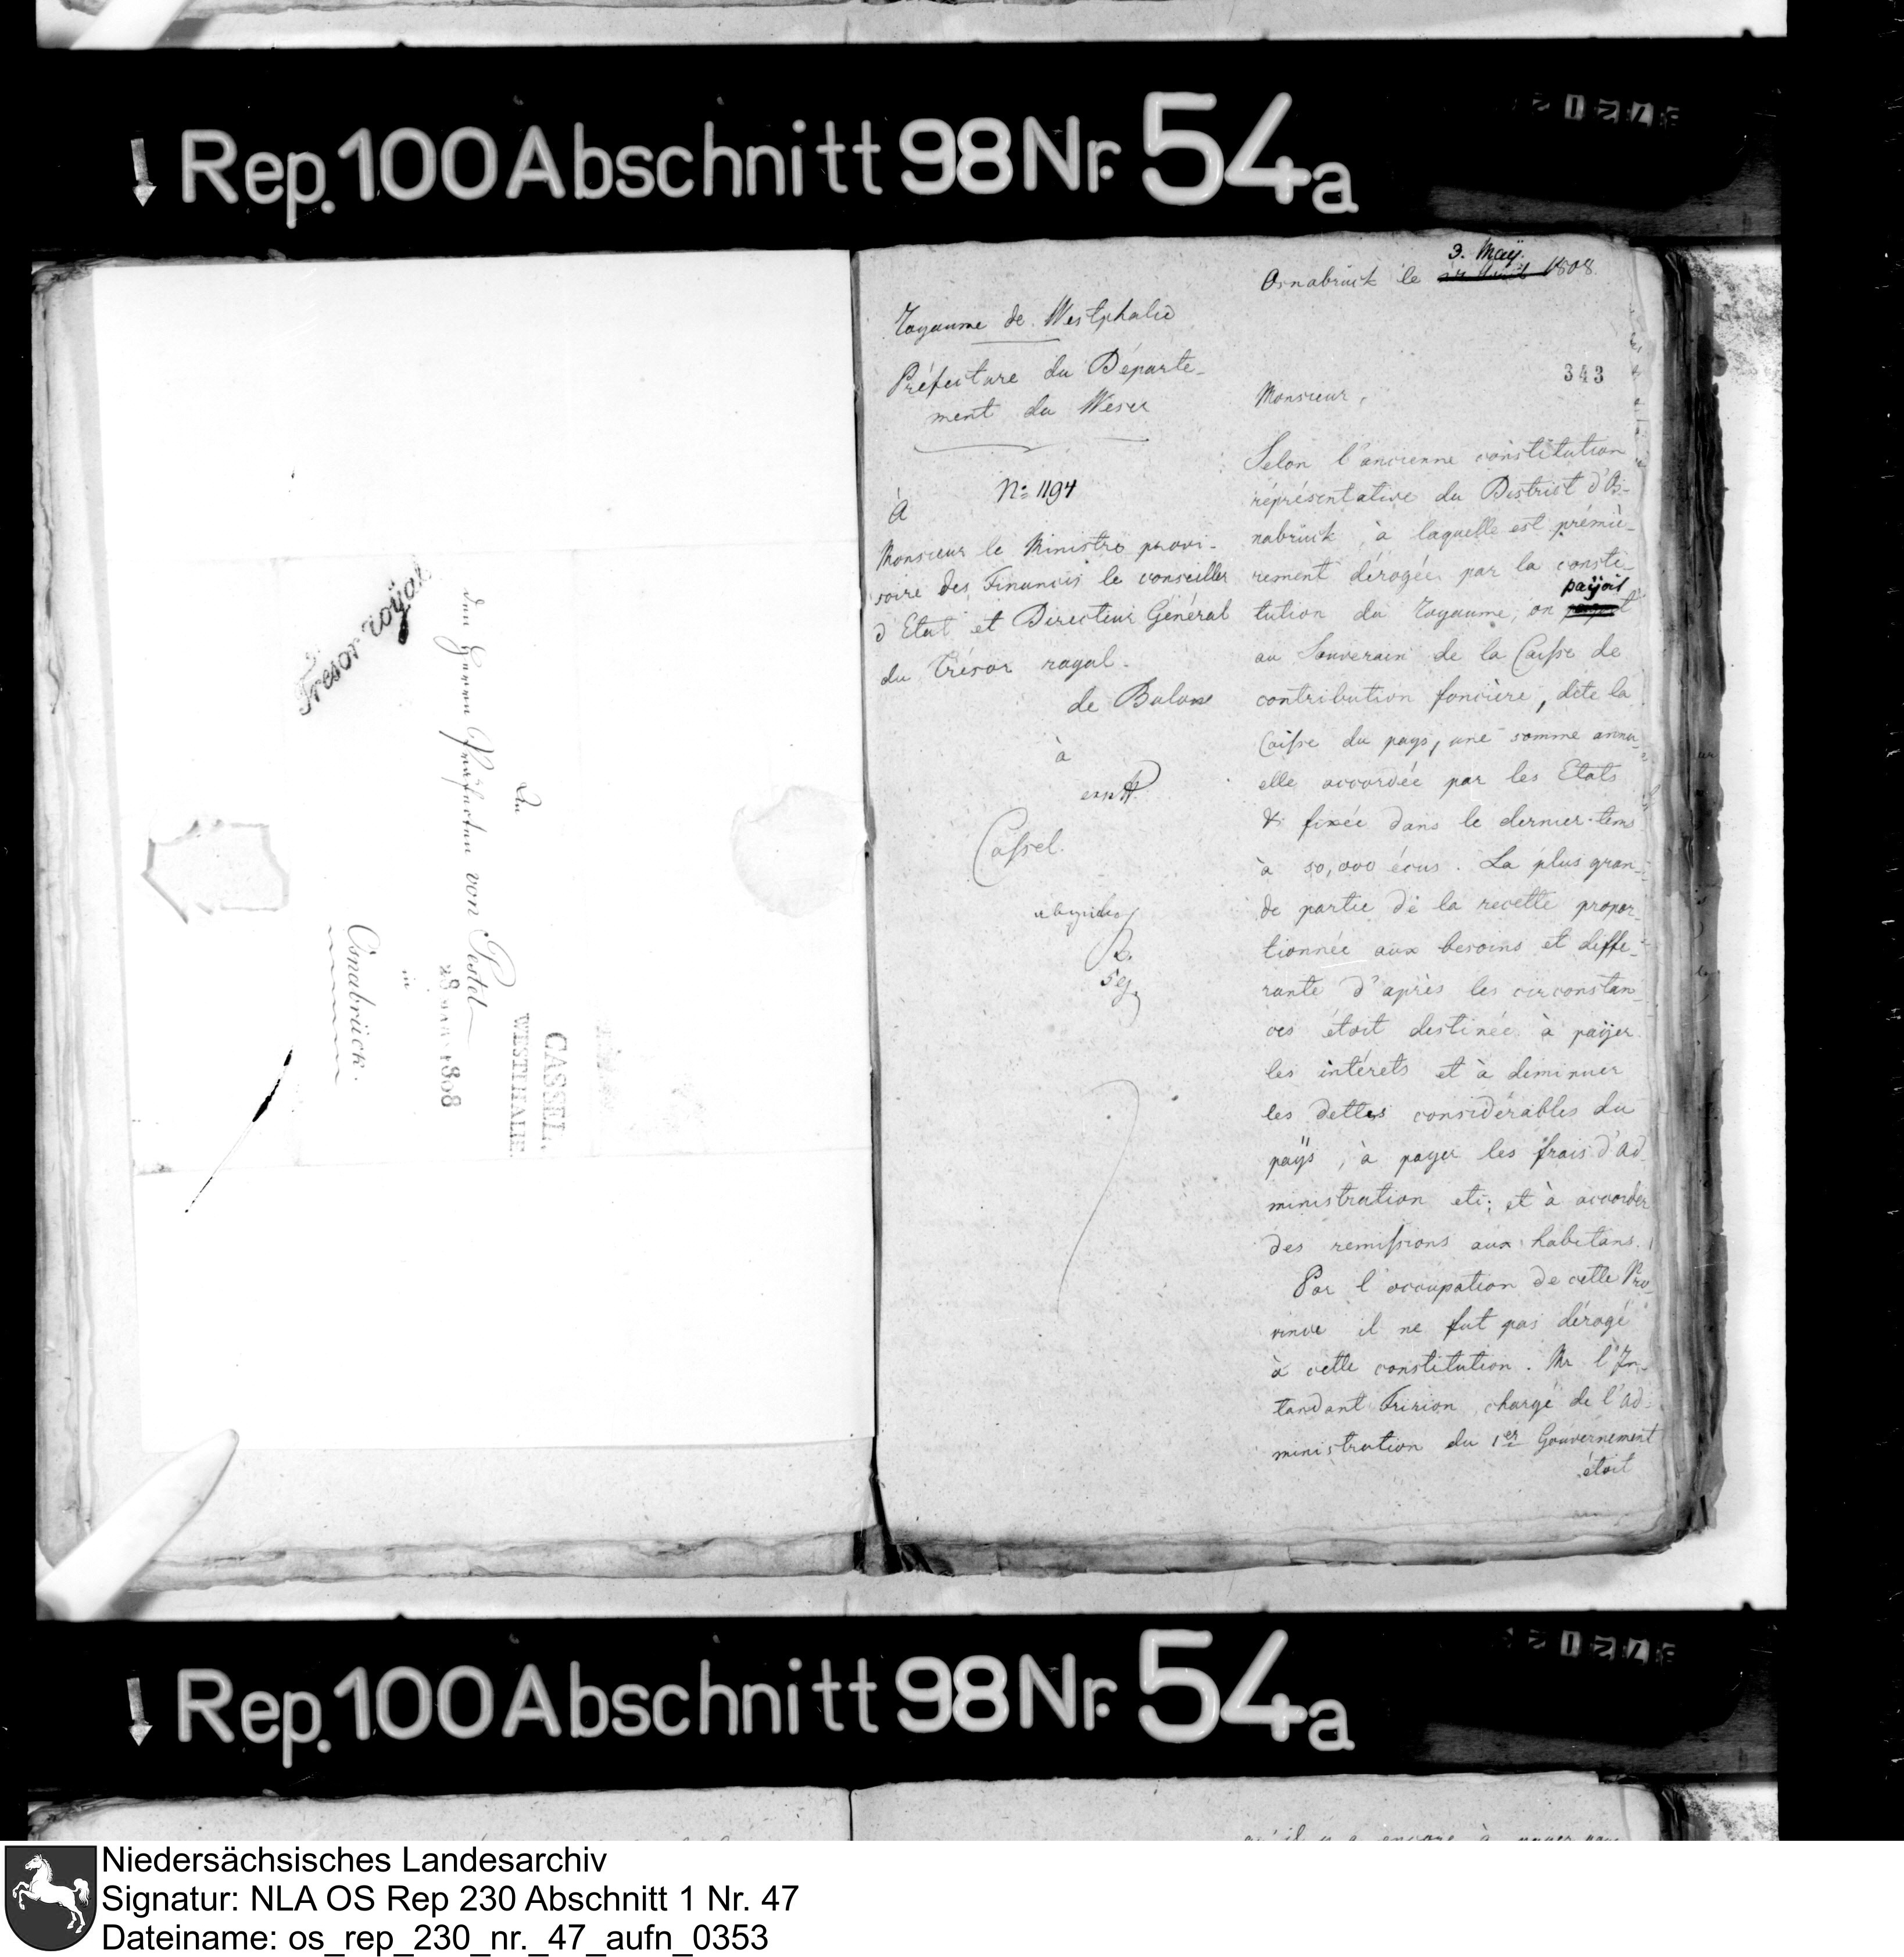 ↓ Rep. 100 Abschnitt 98 Nr. 54a
Tresor roÿal
An
den Herrn Präfecten von Pestel
in
Osnabrück.
28 MARS 1808
CASSEL,
WESTPHALIE.
Osnabruck le 3. Maÿ 1808.
343
Royaume de Westphalie
Préfecture du Départe-
ment du Weser
No: 1194
À
Monsieur le Ministre provi-
soire des Finances le conseiller
d'Etat et Directeur Général
du Trésor royal.
de Bulow
à
Cassel.
Monsieur,
Selon l'ancienne constitution
réprésentative du District d'Os-
nabruck, à laquelle est prémiè-
rement dérogée par la consti-
tution du Royaume, on paÿoit
au Souverain de la Caisse de
contribution foncière, dite la
Caisse du pays, une somme annu-
elle accordée par les Etats
& fixée dans le dernier tems
à 50,000 écus. La plus gran-
de partie de la recette propor-
tionnée aux besoins et diffe-
rante d'après les circonstan-
ces étoit destinée à paÿer
les intérets et à diminuer
les dettes considérables du
paÿs, à payer les frais d'ad-
ministration etc; et à accorder
des remissions aux habitans.
Par l'occupation de cette Pro-
vince il ne fut pas dérogé
à cette constitution. Mr l'In-
tendant Fririon chargé de l'ad-
ministration du 1er Gouvernement
étoit
↓ Rep. 100 Abschnitt 98 Nr. 54a
Niedersächsisches Landesarchiv
Signatur: NLA OS Rep 230 Abschnitt 1 Nr. 47
Dateiname: os_rep_230_nr._47_aufn_0353